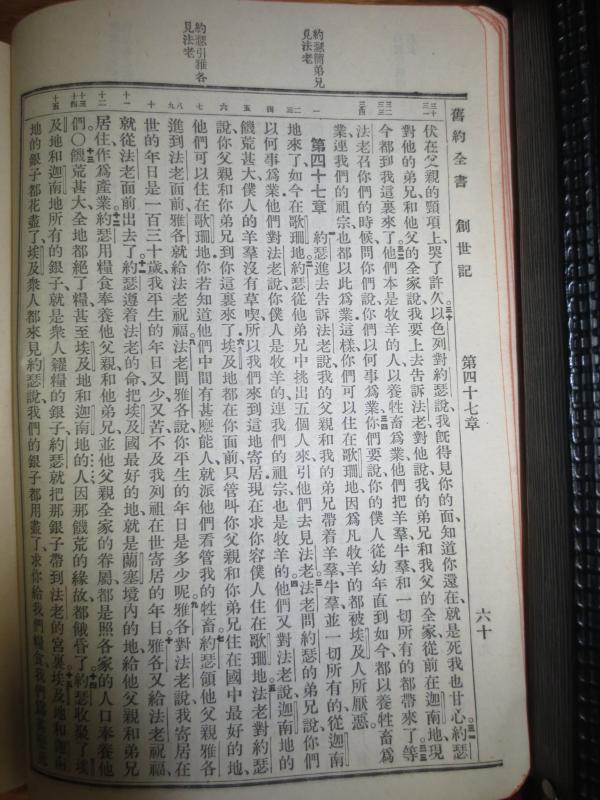 約瑟簡弟兄
見法老
約瑟引雅各
見法老
舊約全書 創世記 第四十七章 六十
伏在父親的頸項上哭了許久、以色列對約瑟說我旣得見你的面、知道你還在、就是死我也甘心、約瑟
對他的弟兄和他父的全家說、我要上去告訴法老對他說、我的弟兄和我父的全家從前在迦南地、現
今都到我這裏來了、他們本是牧羊的人、以養牲畜爲業、他們把羊羣牛羣、和一切所有的都帶來了、等
法老召你們的時候、問你們說、你們以何事爲業、你們要說、你的僕人從幼年直到如今、都以養牲畜爲
業、連我們的祖宗、也都以此爲業、這樣、你們可以住在歌珊地、因爲凡牧羊的都被埃及人所厭惡
第四十七章 約瑟進去告訴法老說、我的父親和我的弟兄帶着羊羣牛羣、並一切所有的、從迦南
地來了、如今在歌珊地、約瑟從他弟兄中挑出五個人來、引他們去見法老、法老問約瑟的弟兄說、你們
以何事爲業、他們對法老說、你僕人是牧羊的、連我們的祖宗、也是牧羊的、他們又對法老說、迦南地的
饑荒甚大、僕人的羊羣沒有草喫、所以我們來到這地寄居、現在求你容僕人住在歌珊地、法老對約瑟
說、你父親和你弟兄到你這裏來了、埃及地都在你面前、只管叫你父親和你弟兄住在國中最好的地、
他們可以住在歌珊地、你若知道他們中間有甚麼能人、就派他們看管我的牲畜、約瑟領他父親雅各
進到法老面前、雅各就給法老祝福、法老問雅各說、你平生的年日是多少呢、雅各對法老說、我寄居在
世的年日是一百三十歲、我平生的年日又少又苦、不及我列祖在世寄居的年日、雅各又給法老祝福、
就從法老面前出去了、約瑟遵着法老的命、把埃及國最好的地、就是蘭塞境內的地、給他父親和弟兄
居住、作爲產業、約瑟用糧食奉養他父親和他弟兄、並他父親全家的眷屬、都是照各家的人口奉養他
們、〇饑荒甚大、全地都絕了糧、甚至埃及地和迦南地的人、因那饑荒的緣故、都餓昏了、約瑟收聚了埃
及地和迦南地所有的銀子、就是衆人糴糧的銀子、約瑟就把那銀子帶到法老的宮裏、埃及地和迦南
地的銀子都花盡了、埃及衆人都來見約瑟說、我們的銀子都用盡了、求你給我們糧食、我們爲甚麼死